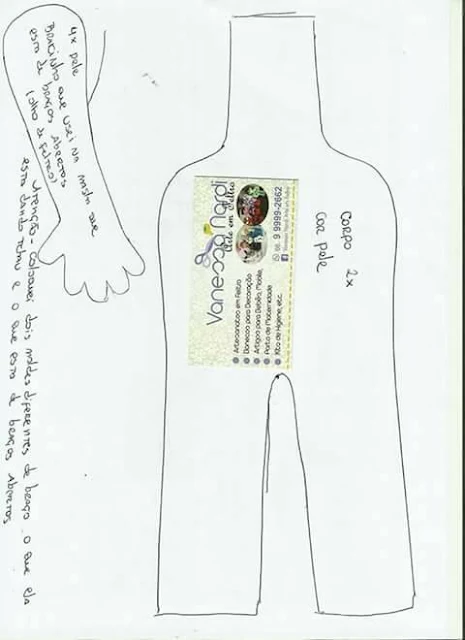 4x pele
BRACINHO que usei na miss que
está de braços abertos
(olho de feltro)
Atenção - coloquei dois moldes diferentes de braço o que ela
está dando tchau e o que está de braços abertos
CORPO 2x
COR pele
Vanessa Nardi
Arte em Feltro
55. 9.9999-2662
Artesanatos em Feltro
Bonecos para Decoração
Artigos para Bebês, Mobile,
Porta de Maternidade
Kits de Higiene, etc.